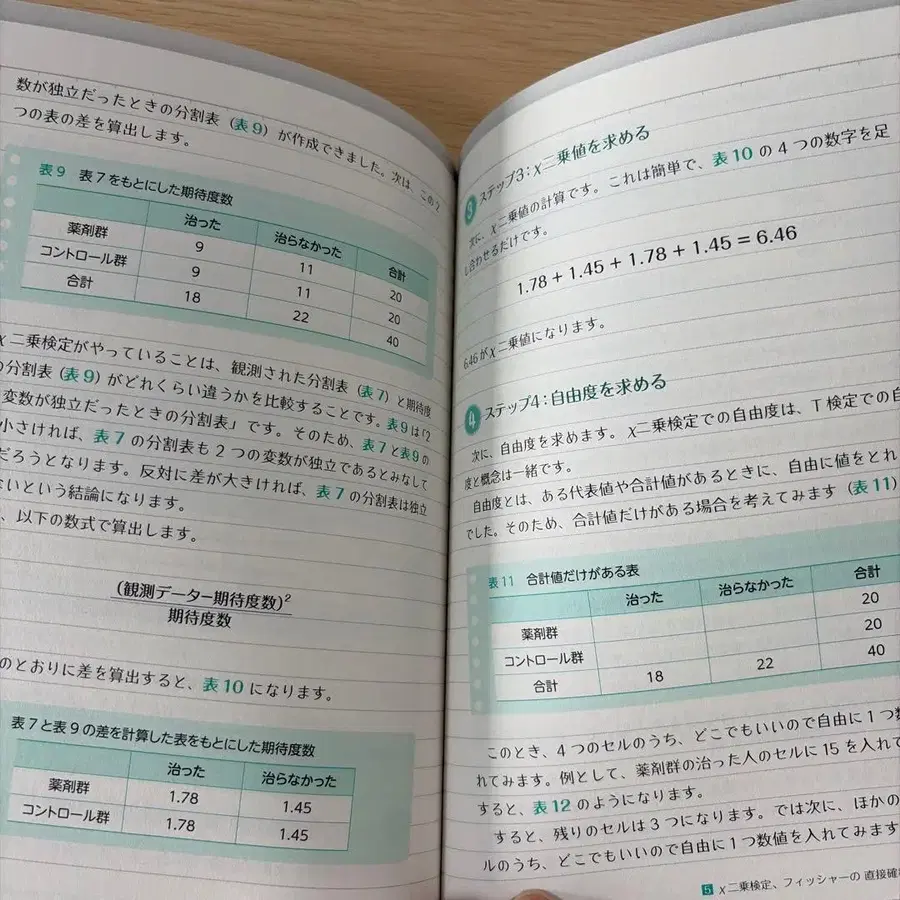 数が独立だったときの分割表（表9）が作成できました。次は、この2
つの表の差を算出します。
表9 表7をもとにした期待度数
治った 治らなかった 合計
薬剤群 9 11 20
コントロール群 9 11 20
合計 18 22 40
χ二乗検定がやっていることは、観測された分割表（表7）と期待度
の分割表（表9）がどれくらい違うかを比較することです。表9は「2
変数が独立だったときの分割表」です。そのため、表7と表9の
小さければ、表7の分割表も2つの変数が独立であるとみなして
だろうとなります。反対に差が大きければ、表7の分割表は独立
いという結論になります。
、以下の数式で算出します。
(観測データー期待度数)²
期待度数
のとおりに差を算出すると、表10になります。
表7と表9の差を計算した表をもとにした期待度数
治った 治らなかった
薬剤群 1.78 1.45
コントロール群 1.78 1.45
3 ステップ3：χ二乗値を求める
次に、χ二乗値の計算です。これは簡単で、表10の4つの数字を足
し合わせるだけです。
1.78 + 1.45 + 1.78 + 1.45 = 6.46
6.46がχ二乗値になります。
4 ステップ4：自由度を求める
次に、自由度を求めます。χ二乗検定での自由度は、T検定での自
度と概念は一緒です。
自由度とは、ある代表値や合計値があるときに、自由に値をとれ
でした。そのため、合計値だけがある場合を考えてみます（表11）
表11 合計値だけがある表
治った 治らなかった 合計
薬剤群 20
コントロール群 20
合計 18 22 40
このとき、4つのセルのうち、どこでもいいので自由に1つ数
れてみます。例として、薬剤群の治った人のセルに15を入れて
すると、表12のようになります。
すると、残りのセルは3つになります。では次に、ほかの
ルのうち、どこでもいいので自由に1つ数値を入れてみます
5 χ二乗検定、フィッシャーの直接確